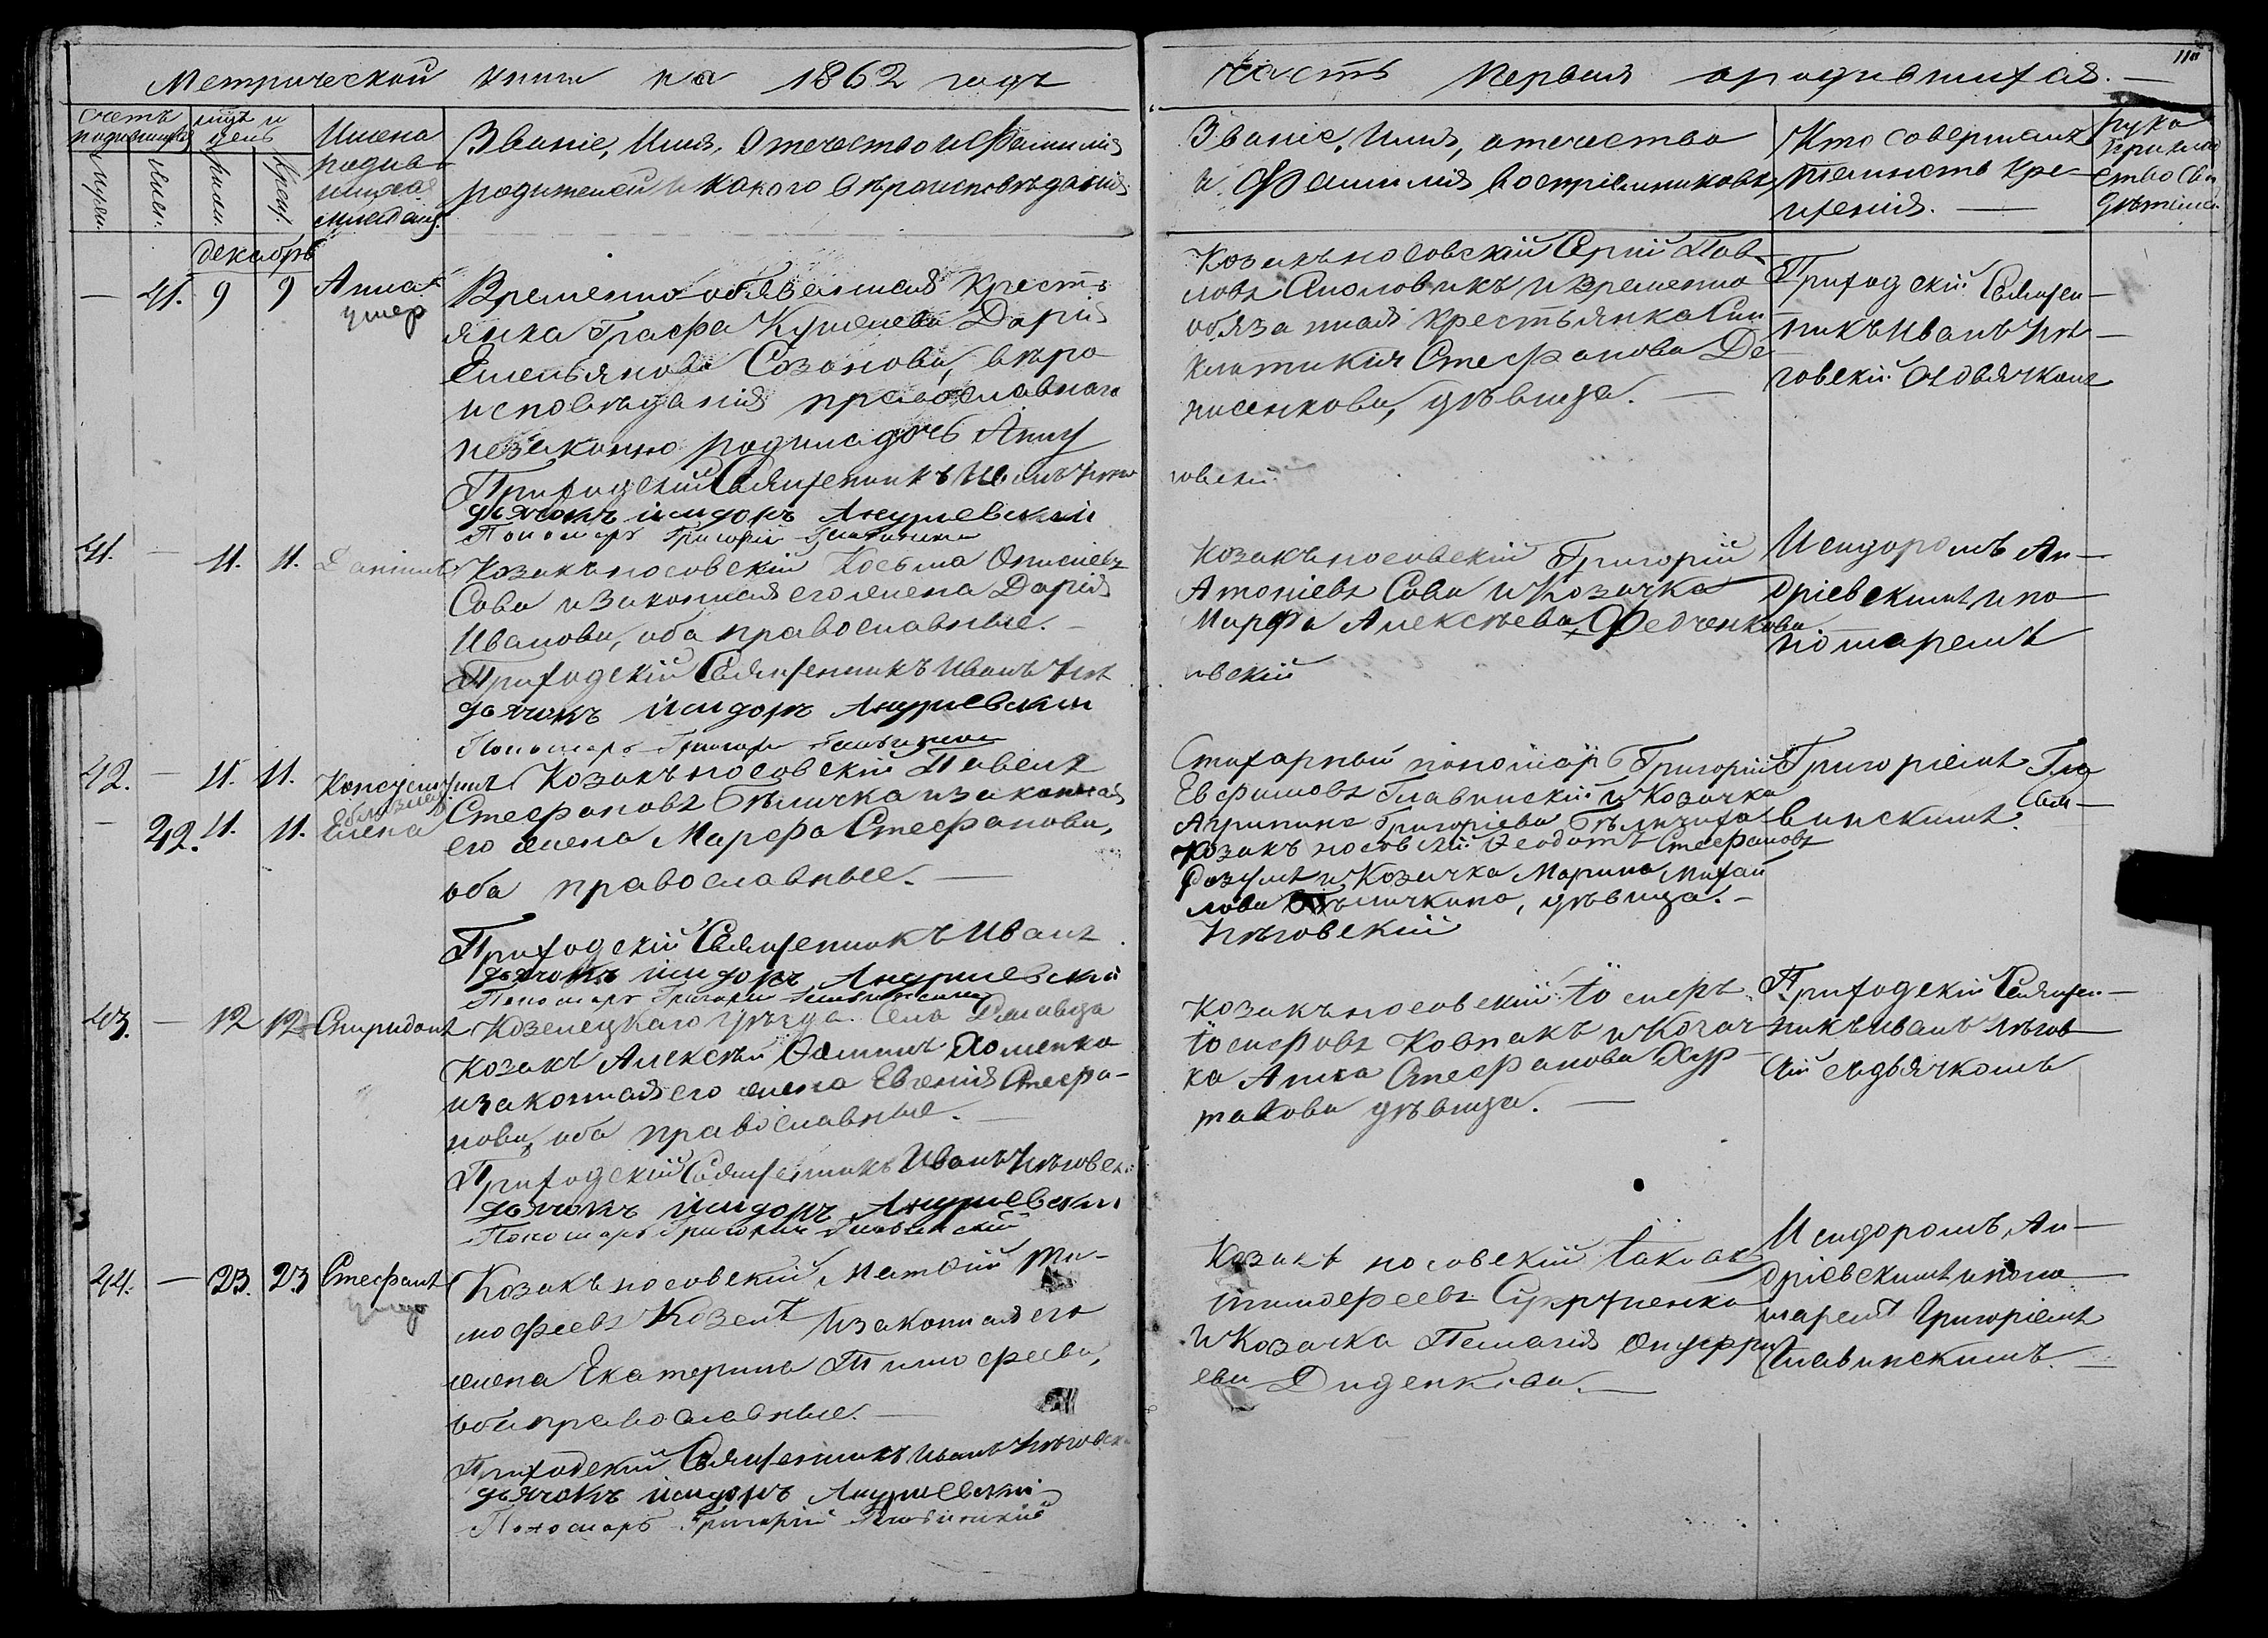 Метрической книги на 1862 годъ
Часть первая ородившихся.
11
Счетъ родившихся
мцъ и день
Имена родив-
шихся
Званіе, Имя, Отечество и Фамилія
родителей и какого вѣроисповѣданія.
Званіе, Имя, отечество
и Фамилія воспріемниковъ
Кто совершалъ
таинство кре-
щенія.
рука
прикла
ство сви
дѣтелей
декабрь
— 41. 9 9 Анна
умер
Временно-обязанная кресть
янка Графа Кушелева Дарія
Емельянова Созонова, вѣро
исповѣданія православнаго
незаконно родила дочь Анну
Приходскій Священникъ Иванъ
дьячокъ исидоръ Андриевский
Пономарь Григорій
Козакъ носовскій Сергій Пав-
ловъ и временно
обязанная крестьянка Син
клитикія Стефанова Де
нисенкова, дѣвица.
говскій
Приходскій Священ-
никъ Иванъ Нѣ-
говскій съ дьячкомъ
41. — 11. 11. Даніилъ
Козакъ носовскій Косьма Онисіевъ
Сова и законная его жена Дарія
Иванова, оба православные.
Приходскій Священникъ Иванъ Нѣг
дьячокъ исидоръ Андриевский
Пономарь Григорій
Козакъ носовскій Григорій
Антоніевъ Сова и Козачка
Марфа Алексѣева Федченкова
овскій
Исидоромъ Ан-
дріевскимъ и по
номаремъ
42. — 11. 11. Кондратъ
— 42. 11. 11. Елена
близнец
Козакъ носовскій Павелъ
Стефановъ Бѣличка и законная
его жена Марфа Стефанова,
оба православные.
Приходскій Священникъ Иванъ
дьячокъ исидоръ Андриевский
Пономарь Григорій
Стихарный пономарь Григорій
Евфимовъ Главинскій и Козачка
Агрипина Григоріева Бѣличиха
Козакъ носовскій Феодотъ Стефановъ
Розумъ и Козачка Марина Михай
лова Бѣличкина, дѣвица.
Нѣговскій
Григоріемъ Гла
винскимъ.
43. — 12 12 Спиридонъ
Козелецкаго уѣзда Села
Козакъ Алексѣй Фоминъ Хоменко
и законная его жена Евгенія Стефа-
нова, оба православные.
Приходскій Священникъ Иванъ Нѣговск
дьячокъ исидоръ Андриевский
Пономарь Григорій Главинскій
Козакъ носовскій Іосифъ
Іосифовъ Ковпакъ и Козач
ка Анна Стефанова
дѣвица.
Приходскій Священ-
никъ Иванъ Нѣгов
скій съ дьячкомъ
44. — 23. 23 Стефанъ
умер
Козакъ носовскій Матвій Ти-
мофеевъ Козелъ и законная его
жена Екатерина Тимофеева,
оба православные.
Приходский Священникъ Иванъ Нѣговск
дьячокъ исидоръ Андриевский
Пономарь Григорій Главинскій
Козакъ носовскій Іаковъ
Тимофеевъ
и Козачка Пелагія Онуфри
ева Диденкова.
Исидоромъ Ан-
дріевскимъ и поно
маремъ Григоріемъ
Главинскимъ.